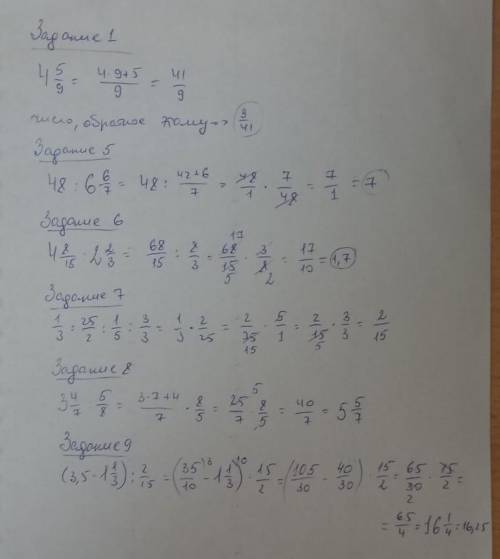 Задание 1
4 5/9 = (4·9+5)/9 = 41/9
число, обратное кому → 9/41
Задание 5
48 : 6 6/7 = 48 : (42+6)/7 = 48/1 · 7/48 = 7/1 = 7
Задание 6
4 8/15 : 2 2/3 = 68/15 : 8/3 = 68/15 · 3/8 = 17/10 = 1,7
17 5 2
Задание 7
1/3 : 25/2 : 1/5 : 3/3 = 1/3 · 2/25 = 2/75 · 5/1 = 2/15 · 3/3 = 2/15
15 5
Задание 8
3 4/7 : 5/8 = (3·7+4)/7 · 8/5 = 25/7 · 8/5 = 40/7 = 5 5/7
5
Задание 9
(3,5 - 1 1/3) : 2/15 = (35/10 - 1 1/3) · 15/2 = (105/30 - 40/30) · 15/2 = 65/30 · 15/2 =
3 10 2
= 65/4 = 16 1/4 = 16,25